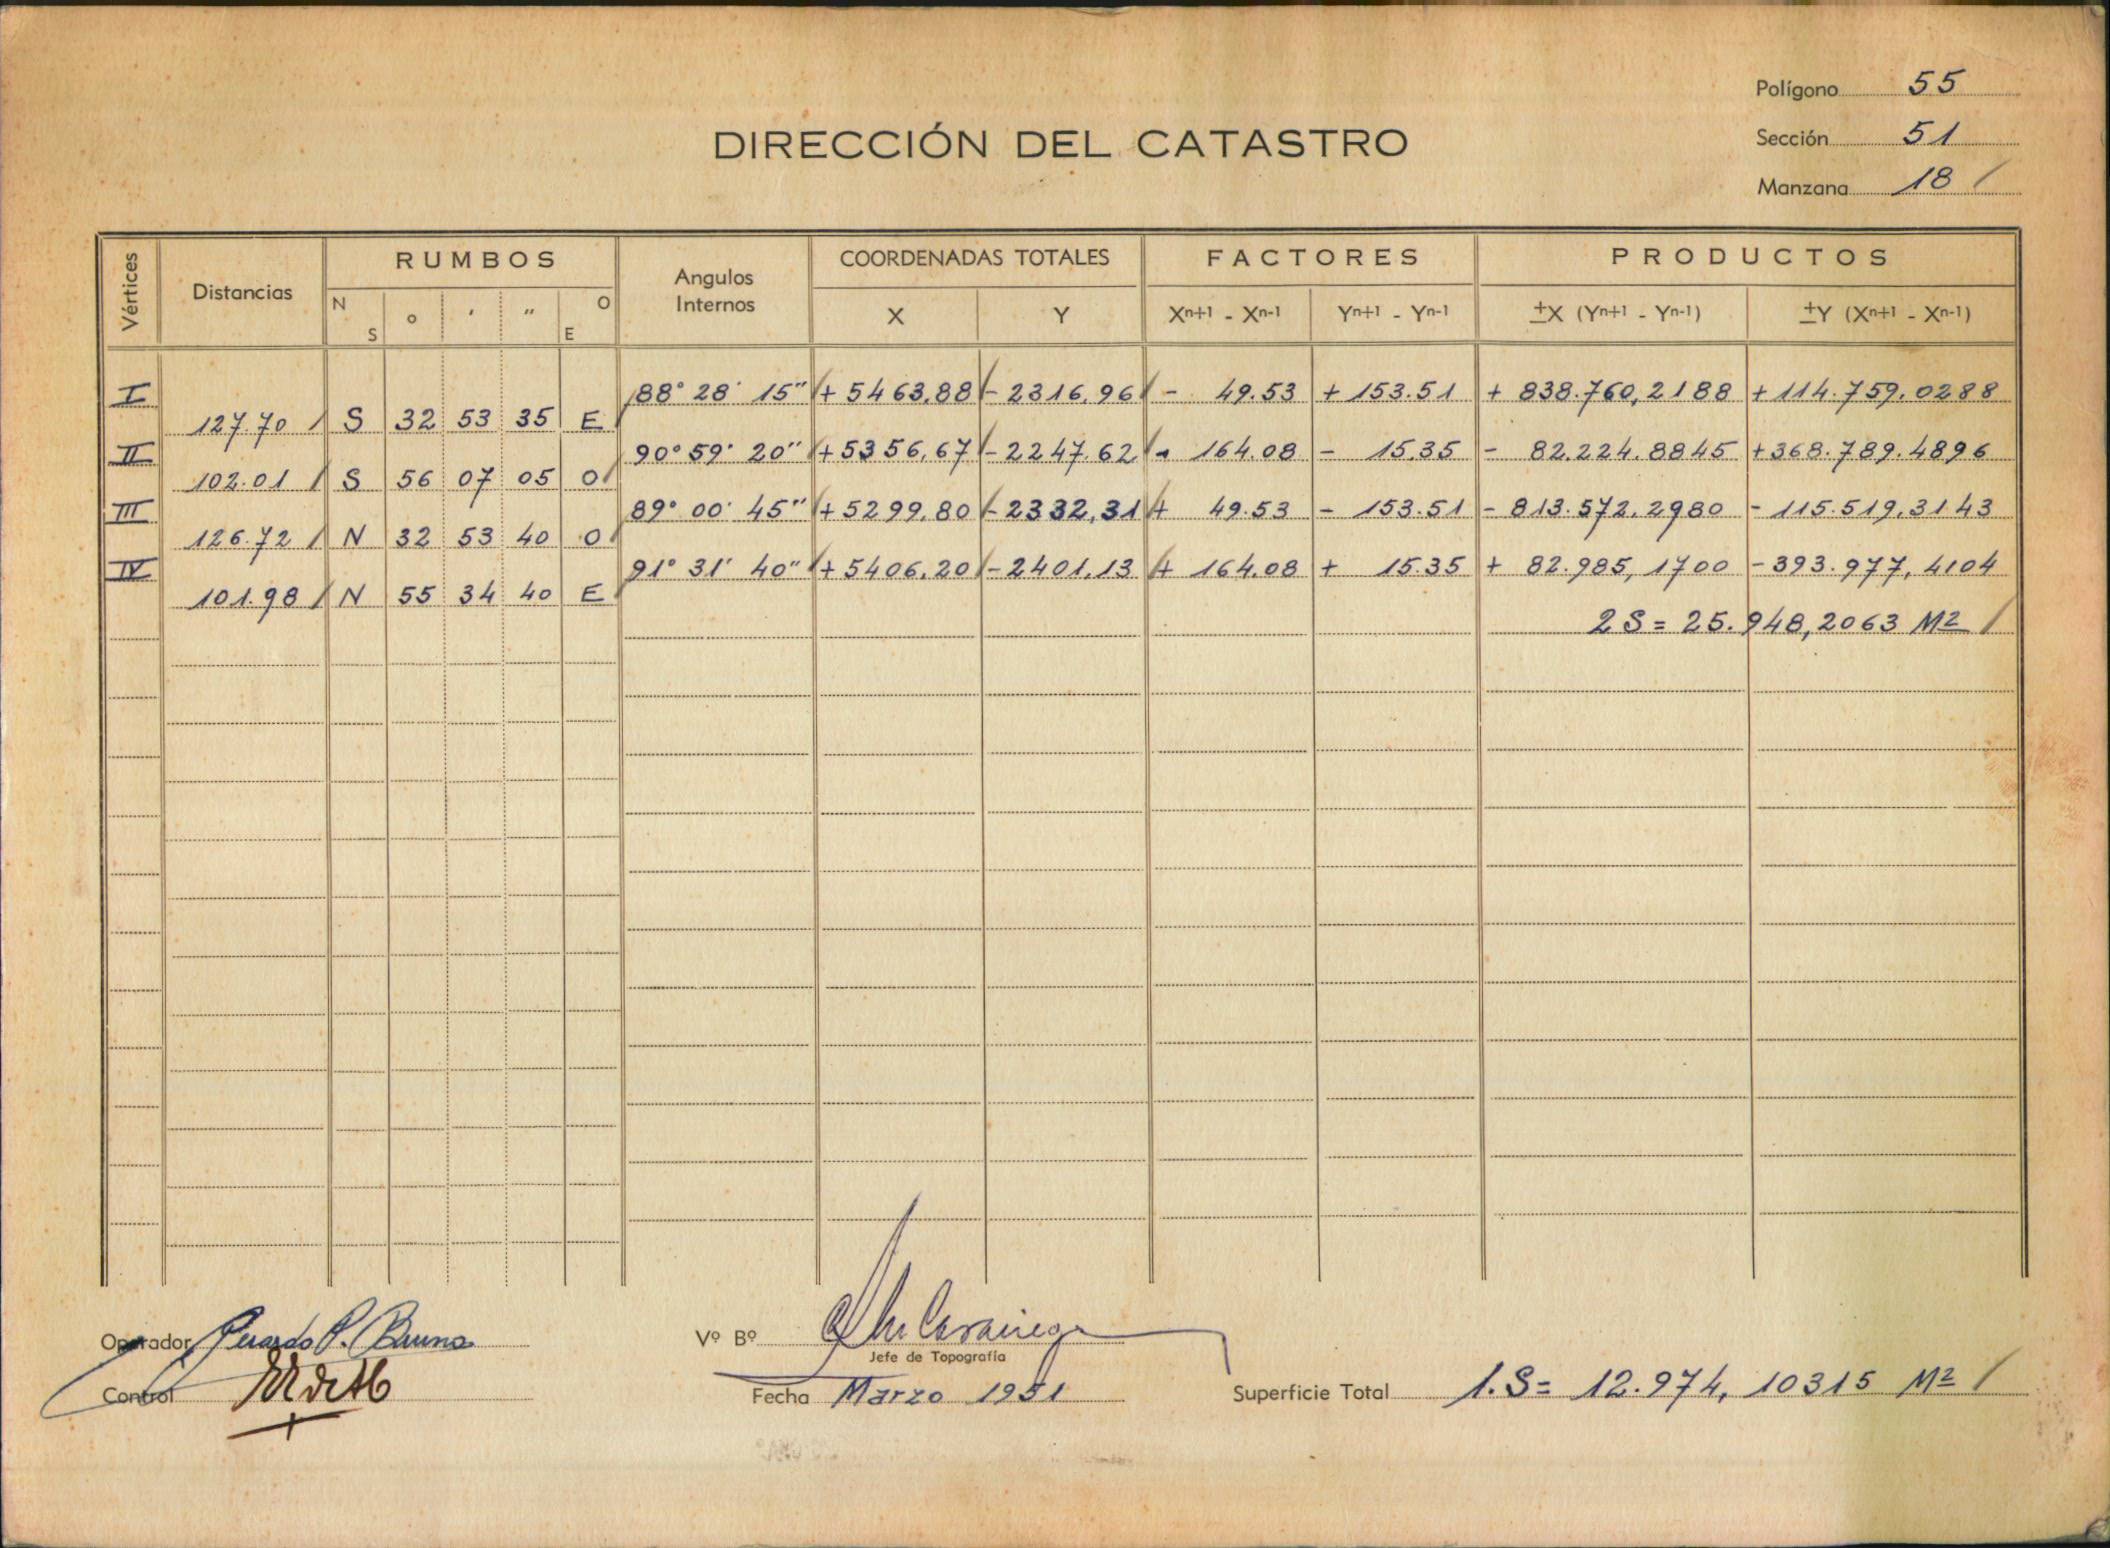 Polígono 55
DIRECCIÓN DEL CATASTRO
Sección 51
Manzana 18 /
Vértices Distancias RUMBOS Angulos Internos COORDENADAS TOTALES FACTORES PRODUCTOS
N S o ′ ″ O E X Y Xn+1 - Xn-1 Yn+1 - Yn-1 ±X (Yn+1 - Yn-1) ±Y (Xn+1 - Xn-1)
I 88° 28′ 15″ + 5463,88 - 2316,96 - 49.53 + 153.51 + 838.760,2188 + 114.759.0288
127.70 / S 32 53 35 E
II 90° 59′ 20″ + 5356,67 - 2247.62 - 164.08 - 15.35 - 82.224.8845 + 368.789.4896
102.01 / S 56 07 05 O
III 89° 00′ 45″ + 5299,80 - 2332,31 + 49.53 - 153.51 - 813.572.2980 - 115.519,3143
126.72 / N 32 53 40 O
IV 91° 31′ 40″ + 5406,20 - 2401,13 + 164.08 + 15.35 + 82.985,1700 - 393.977,4104
101.98 / N 55 34 40 E
2 S = 25.948,2063 M2 /
Operador Gerardo P. Bruno
Vº Bº
Jefe de Topografía
Control
Fecha Marzo 1951
Superficie Total 1.S= 12.974,10315 M2 /